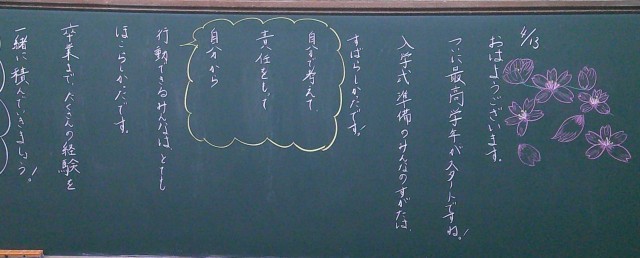 4/13
おはようございます。
ついに最高学年がスタートですね!
入学式準備のみんなのすがたは、
すばらしかったです!
自分で考えて
責任をもって
自分から
行動するみんなは、とても
ほこらしかったです。
卒業まで、たくさんの経験を
一緒に積んでいきましょう!